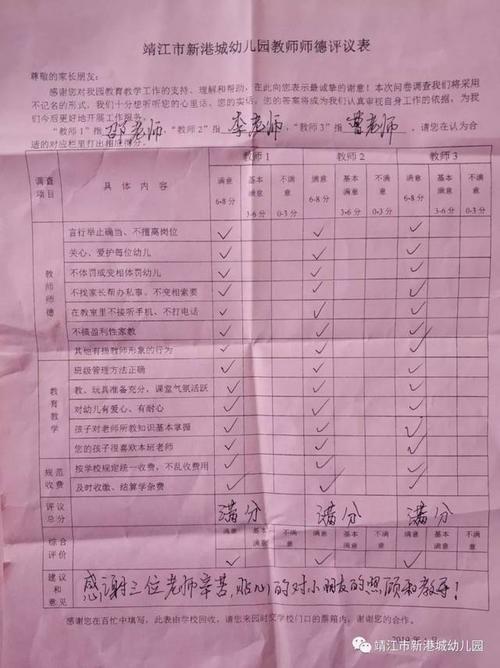 靖江市新港城幼儿园教师师德评议表
尊敬的家长朋友：
感谢您对我园教育教学工作的支持、理解和帮助，在此向您表示最诚挚的谢意！本次问卷调查我们将采用
不记名的形式，我们十分想听听您的心里话，您的实话，您的答案将成为我们认真审视自身工作的依据，为我
们今后更好地开展工作服务。
“教师1”指 老师，“教师2”指 李老师，“教师3”指 曹老师，请您在认为合
适的对应栏里打出相应得分。
调查项目 具体内容 教师1 教师2 教师3
满意 基本满意 不满意 满意 基本满意 不满意 满意 基本满意 不满意
6-8分 3-6分 0-3分 6-8分 3-6分 0-3分 6-8分 3-6分 0-3分
教师师德
言行举止确当、不擅离岗位 ✓ ✓ ✓
关心、爱护每位幼儿 ✓ ✓ ✓
不体罚或变相体罚幼儿 ✓ ✓ ✓
不找家长帮办私事、不变相索要 ✓ ✓ ✓
在教室里不接听手机、不打电话 ✓ ✓ ✓
不搞盈利性家教 ✓ ✓ ✓
其他有损教师形象的行为 ✓ ✓ ✓
教育教学
班级管理方法正确 ✓ ✓ ✓
教、玩具准备充分，课堂气氛活跃 ✓ ✓ ✓
对幼儿有爱心、有耐心 ✓ ✓ ✓
孩子对老师所教知识基本掌握 ✓ ✓ ✓
您的孩子很喜欢本班老师 ✓ ✓ ✓
规范收费
按学校规定统一收费，不乱收费用 ✓ ✓ ✓
及时收缴、结算学杂费 ✓ ✓ ✓
评议总分 满分 满分 满分
综合评价 满意 基本满意 不满意 满意 基本满意 不满意 满意 基本满意 不满意
✓ ✓ ✓
建议和意见 感谢三位老师辛苦，贴心的对小朋友的照顾和教导！
感谢您在百忙中填写，此表由学校回收，请您来园时交学校门口的票箱内，谢谢您的合作。
2019年1月
靖江市新港城幼儿园